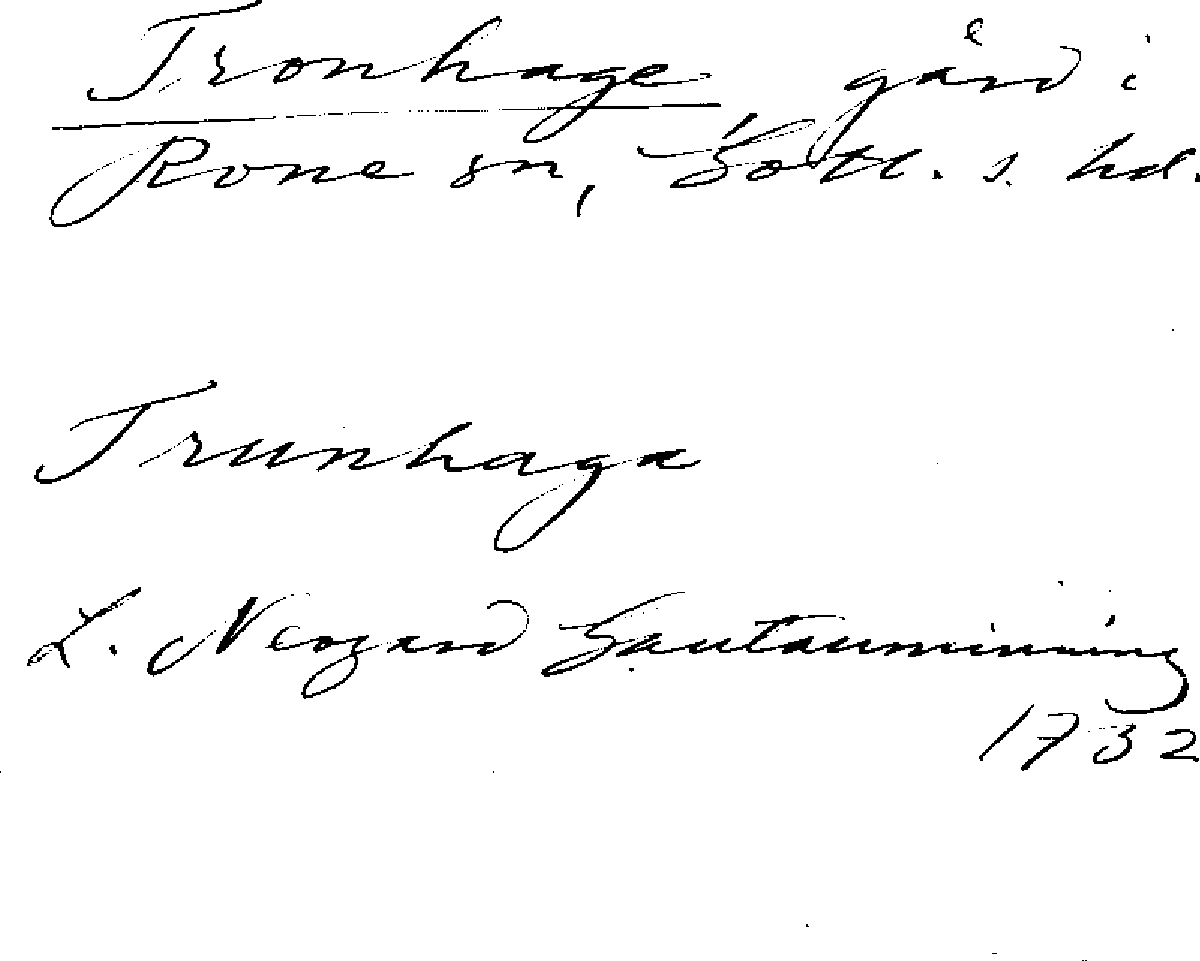 Tronhage, gård i
Rone sn, Gotl. s. hd.
Trunhaga
L. Neogard Gautauminning
1732